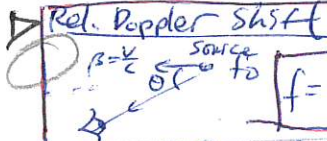 Rel. Doppler Shift
β = v/c
Source
θ
f₀
f =